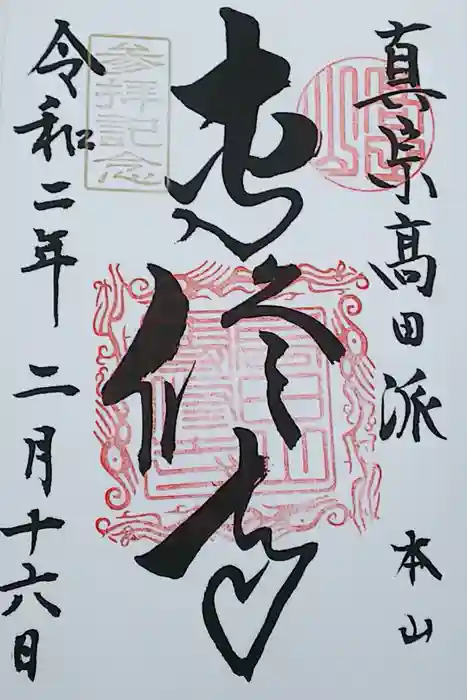 真宗高田派
本山
専修寺
参拝記念
令和二年 二月十六日